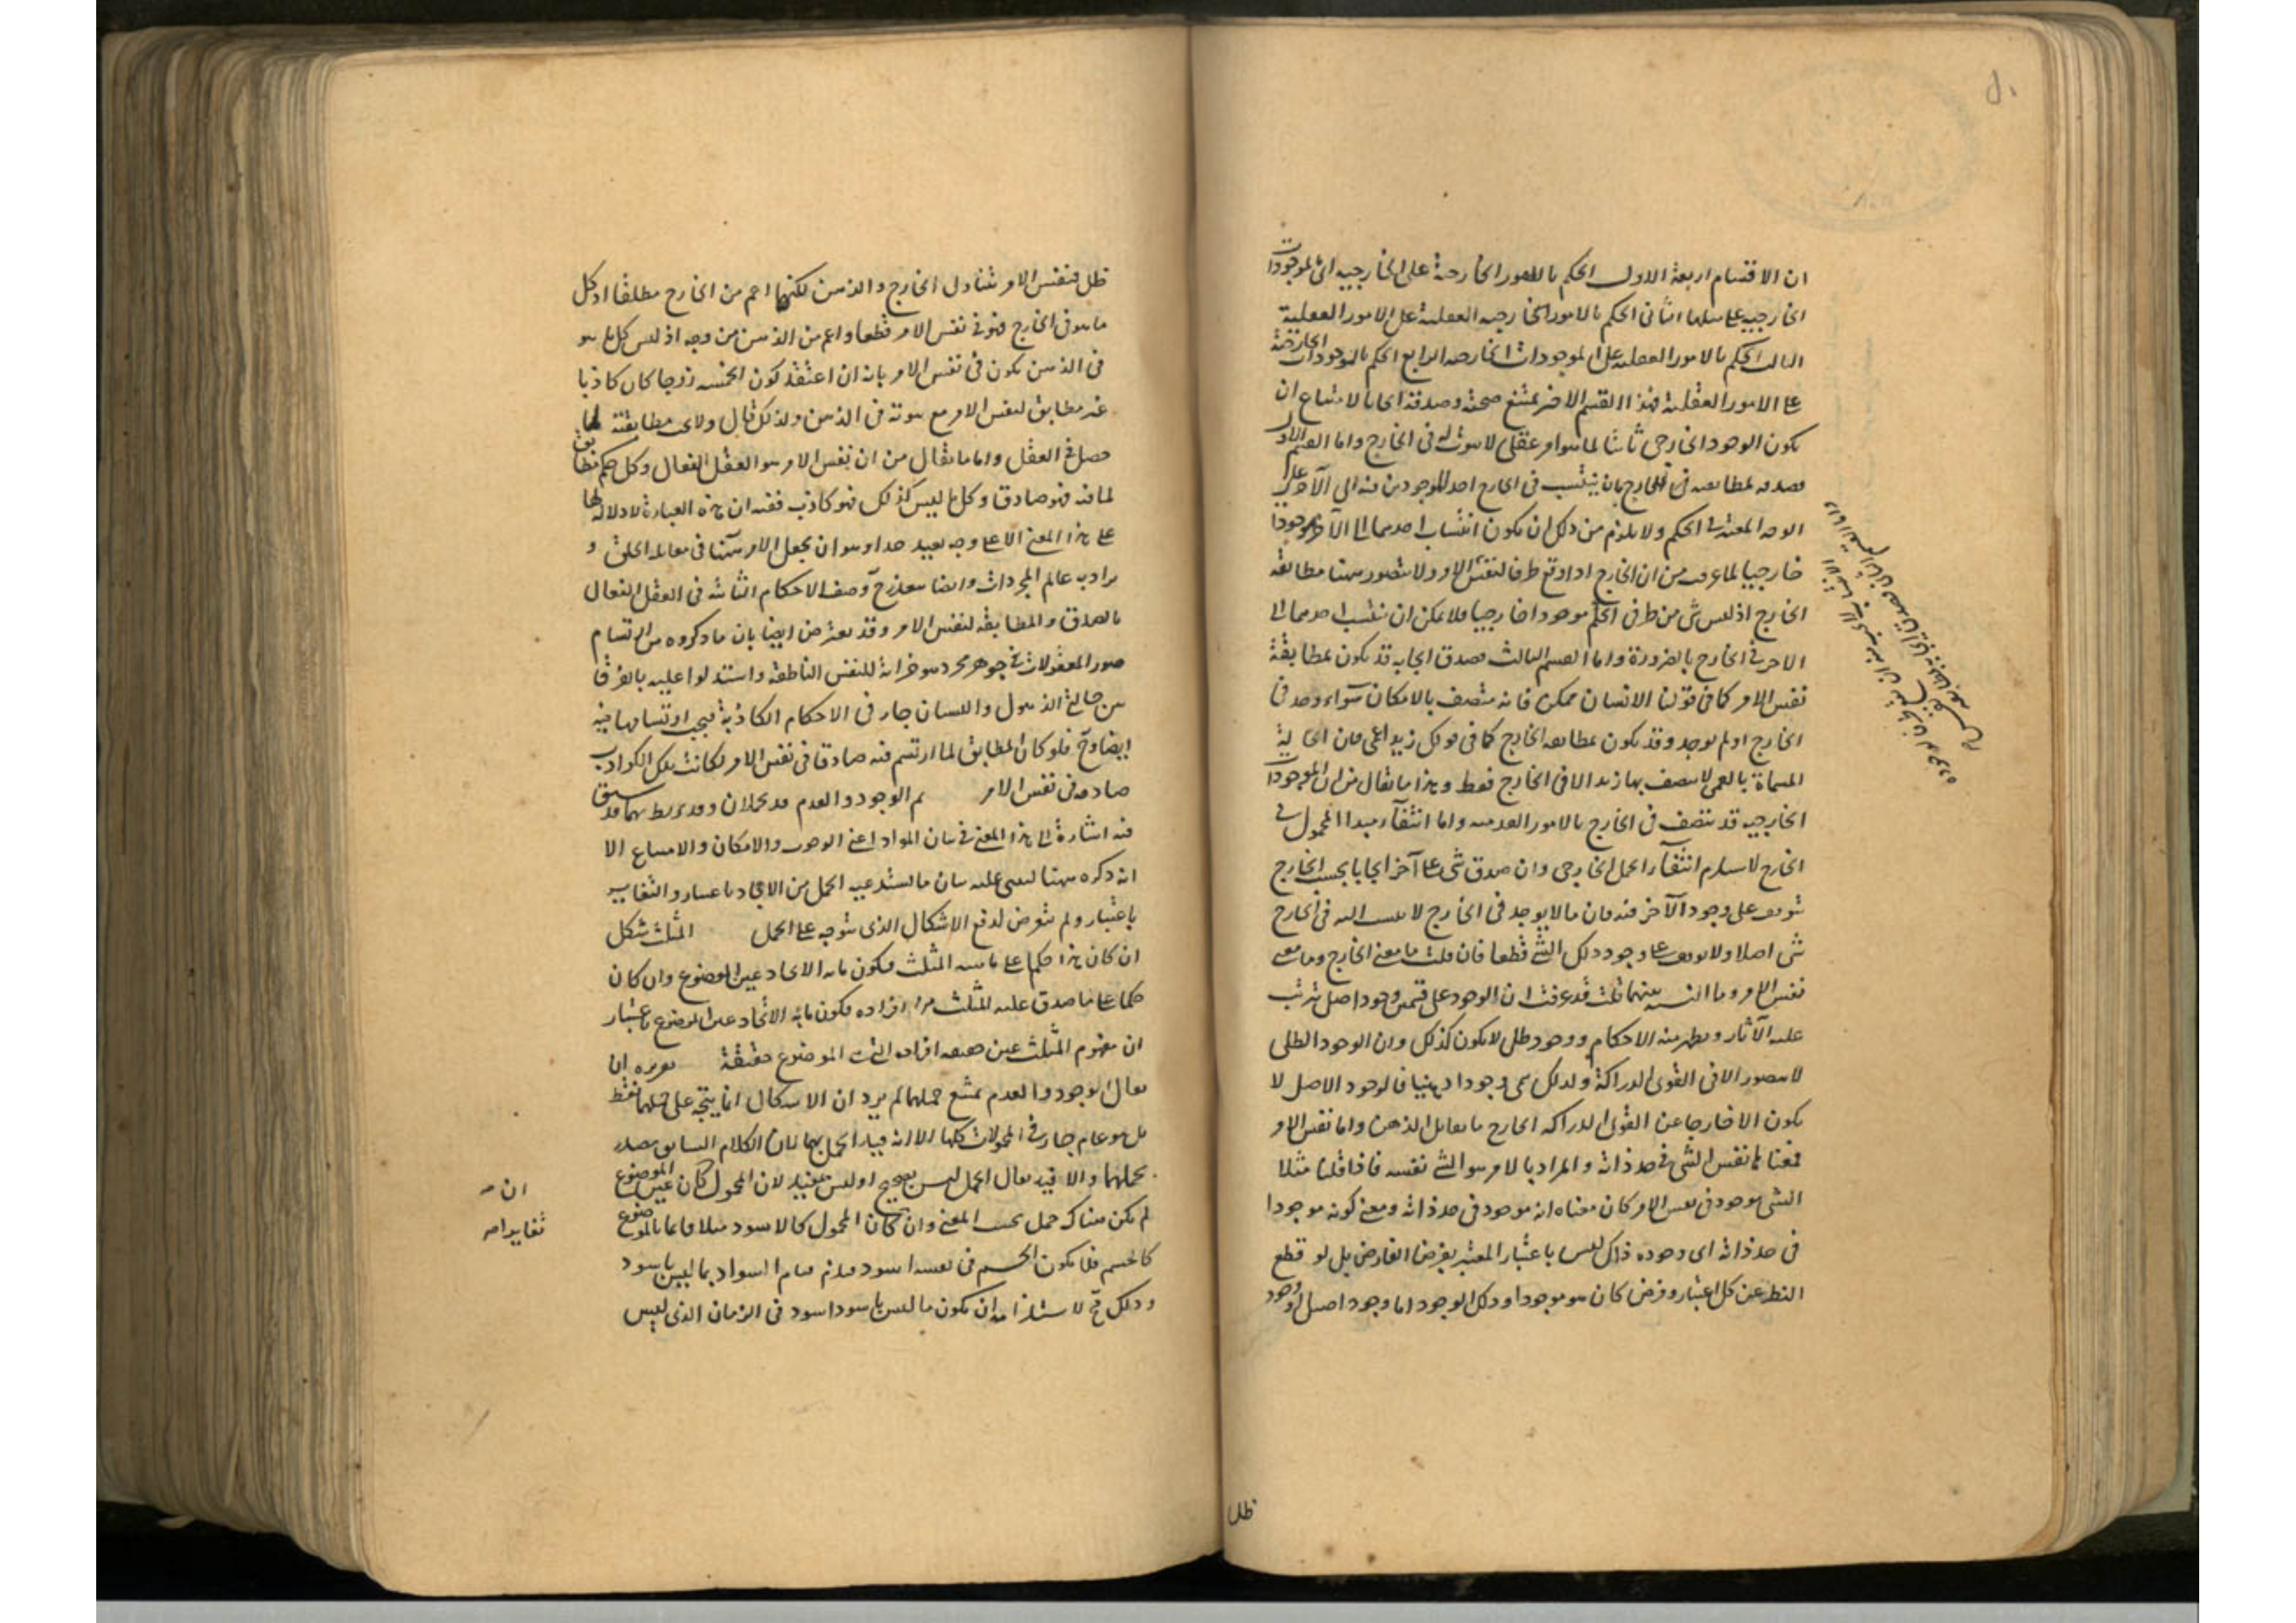 ان الاقسام اربعة الاول الحكم بالامور الخارجية على الخارجية اى الموجودات
الخارجية على مثلها الثانى الحكم بالامور الخارجيه العقلية على الامور العقلية
الثالث الحكم بالامور العقلية على الموجودات الخارجية الرابع الحكم بالموجودات الخارجية
على الامور العقلية فهذا القسم الاخير يمتنع صحته وصدقه ايجابا لامتناع ان
يكون الوجود الخارجى ثابتا لما هو امر عقلى لا ثبوت له فى الخارج واما القسم الاول
فصدقه لمطابقته فى الخارج بان ينتسب فى الخارج احد الموجودين منه الى الآخر على
الوجه المعتبر فى الحكم ولا يلزم من ذلك ان يكون انتساب احدهما الى الآخر موجودا
خارجيا لما عرفت من ان الخارج اذا وقع ظرفا لنفس الامر ولا يتصور هنا مطابقة
الخارج اذ ليس شئ من طرفى الحكم موجودا خارجيا فلا يمكن ان ينتسب احدهما الى
الاخر فى الخارج بالضرورة واما القسم الثالث فصدق ايجابه قد يكون لمطابقة
نفس الامر كما فى قولنا الانسان ممكن فانه متصف بالامكان سواء وجد فى
الخارج او لم يوجد وقد يكون لمطابقة الخارج كما فى قولك زيد اعمى فان الحالية
المسماة بالعمى لا يتصف بها زيد الا فى الخارج فقط وهذا ما يقال من ان الموجودات
الخارجيه قد تتصف فى الخارج بالامور العدمية واما انتفآء مبدا المحمول فى
الخارج لا يستلزم انتفآء الحمل الخارجى وان صدق شئ على آخر ايجابا بحسب الخارج
يتوقف على وجود الآخر فيه فان ما لا يوجد فى الخارج لا ينتسب اليه فى الخارج
شئ اصلا ولا يتوقف على وجود ذلك الشئ قطعا فان قلت ما معنى الخارج وما معنى
نفس الامر وما النسبه بينهما قلت قد عرفت ان الوجود على قسمين وجود اصل يترتب
عليه الآثار ويظهر منه الاحكام ووجود ظلى لا يكون كذلك وان الوجود الظلى
لا يتصور الا فى القوى الدراكة ولذلك سمى وجودا ذهنيا فالوجود الاصل لا
يكون الا خارجا عن القوى الدراكه الخارج ما يقابل الذهن واما نفس الامر
فمعناها نفس الشئ فى حد ذاته والمراد بالامر هو الشئ نفسه فاذا قلنا مثلا
الشئ موجود فى نفس الامر كان معناه انه موجود فى حد ذاته ومعنى كونه موجودا
فى حد ذاته اى وجوده ذاك ليس باعتبار المعتبر بفرض الفارض بل لو قطع
النظر عن كل اعتبار وفرض كان هو موجودا وذلك الوجود اما وجود اصيل او وجود
ظلى
ظلى فنفس الامر تتناول الخارج والذهن لكنها اعم من الخارج مطلقا اذ كل
ما هو فى الخارج فهو فى نفس الامر قطعا واعم من الذهن من وجه اذ ليس كل ما هو
فى الذهن يكون فى نفس الامر بانه ان اعتقد كون الخمسه زوجا كان كاذبا
غير مطابق لنفس الامر مع ثبوته فى الذهن ولذلك قال ولا مطابقته لما
حصل فى العقل واما ما يقال من ان نفس الامر هو العقل الفعال وكل حكم مطابق
لما فيه فهو صادق وكل ما ليس كذلك فهو كاذب ففيه ان هذه العبارة لا دلالة لها
على هذا المعنى الا على وجه بعيد جدا وهو ان يجعل الامر هنا فى مقابلة الخلق و
يراد به عالم المجردات وايضا يتعذر ح وصف الاحكام الثابتة فى العقل الفعال
بالصدق والمطابقة لنفس الامر وقد يعترض ايضا بان ما ذكروه من ارتسام
صور المعقولات فى جوهر مجرد هو خزانة للنفس الناطقة واستدلوا عليه بالفرق
بين حالتى الذهول والنسيان جار فى الاحكام الكاذبة فيجب ارتسامها فيه
ايضا وح فلو كان المطابق لما ارتسم فيه صادقا فى نفس الامر لكانت تلك الكواذب
صادقه فى نفس الامر ثم الوجود والعدم قد يحملان وقد يربط بهما قد سبق
فيه اشارة الى هذا المعنى فى بيان المواد اعنى الوجوب والامكان والامتناع الا
انه ذكره هنا ليبنى عليه بيان ما يستدعيه الحمل من الاتحاد باعتبار والتغاير
باعتبار ولم يتعرض لدفع الاشكال الذى يتوجه على الحمل المثلث شكل
ان كان هذا حكما على ماهية المثلث فيكون ما به الاتحاد عين الموضوع وان كان
حكما على ما صدق عليه المثلث من افراده فيكون ما به الاتحاد عين الموضوع باعتبار
ان مفهوم المثلث عين حقيقه افراده التى هى الموضوع حقيقة تقريره ان
يقال الوجود والعدم يمتنع حملهما لم يرد ان الاشكال انما يتجه على حملهما فقط
بل هو عام جار فى المحمولات كلها الا انه قيد الحمل بهما لان الكلام السابق مصدر
بحملهما والا فيه يقال الحمل ليس بصحيح او ليس بمفيد لان المحمول كان عين الموضوع
لم يكن هناك حمل بحسب المعنى وان كان المحمول كالاسود مثلا قائما بالموضوع
كالجسم فلا يكون الجسم فى نفسه اسود فيلزم قيام السواد بما ليس باسود
وذلك مح لاستلزامه ان يكون ما ليس باسود اسود فى الزمان الذى ليس
ان
تغايرا